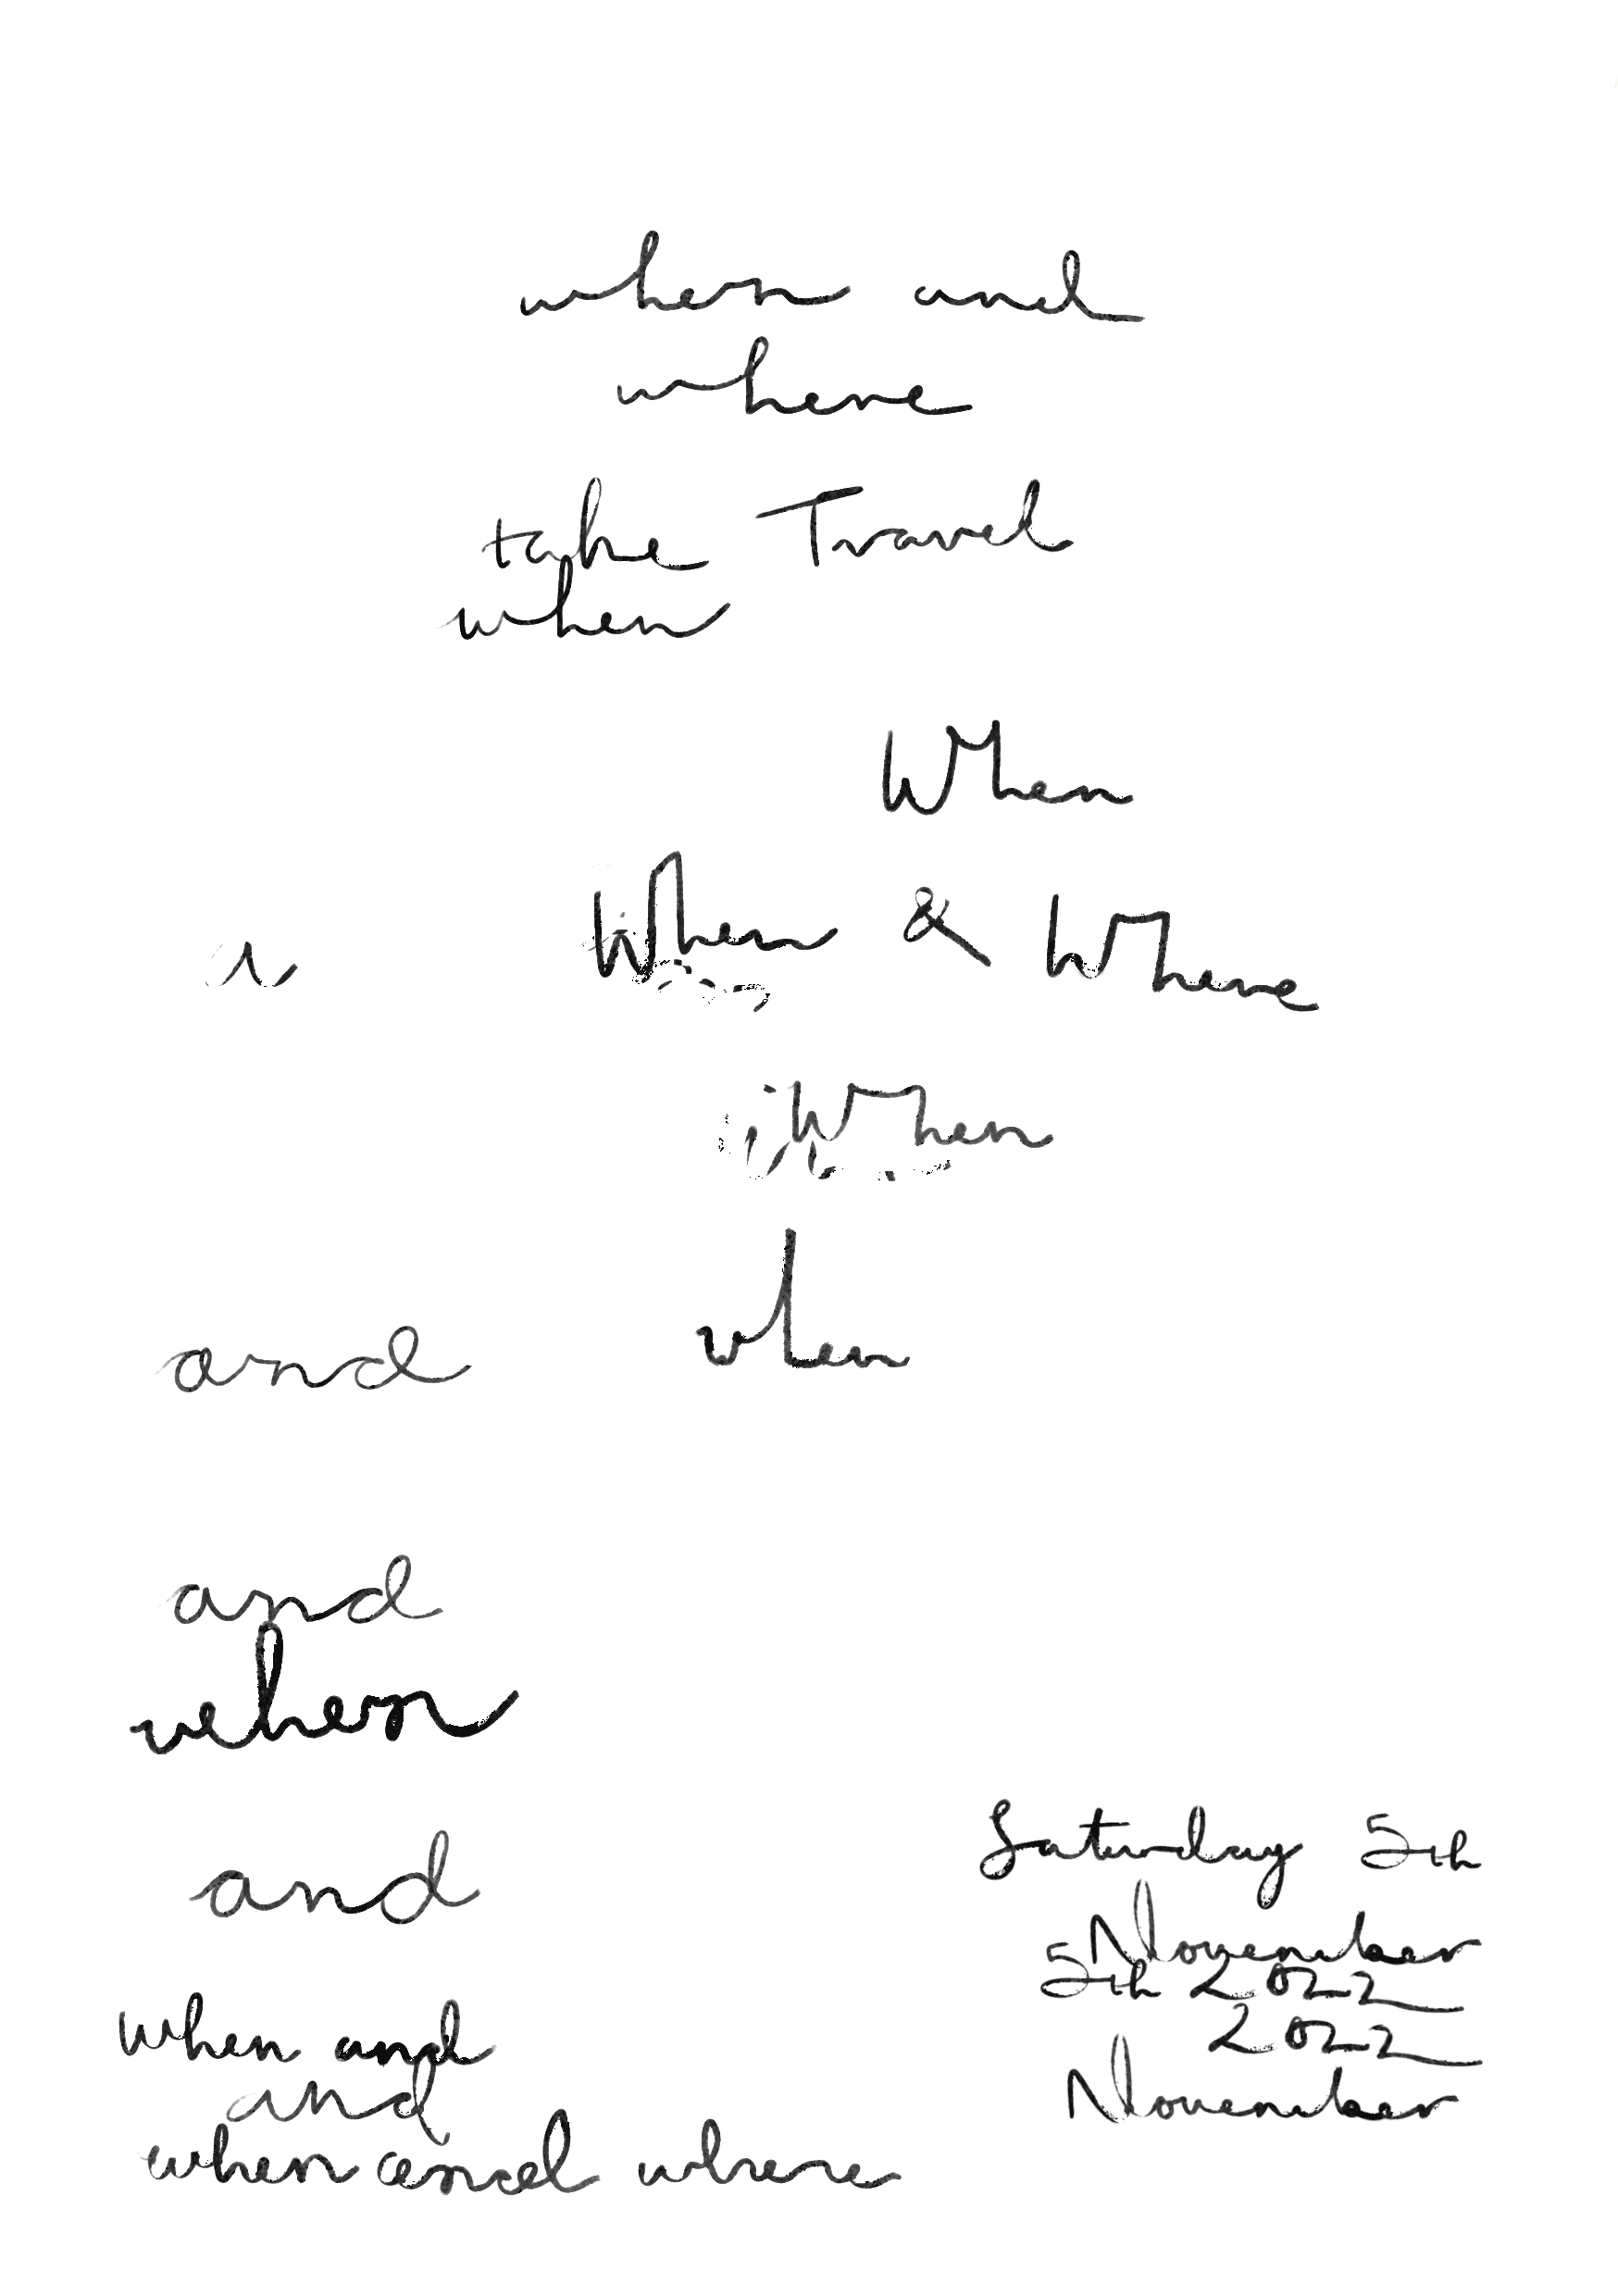 when and
where
take Travel
when
When
When & Where
When
when
and
and
when
and
Saturday 5th
November
5th 2022
2022
when and
and
November
when and where